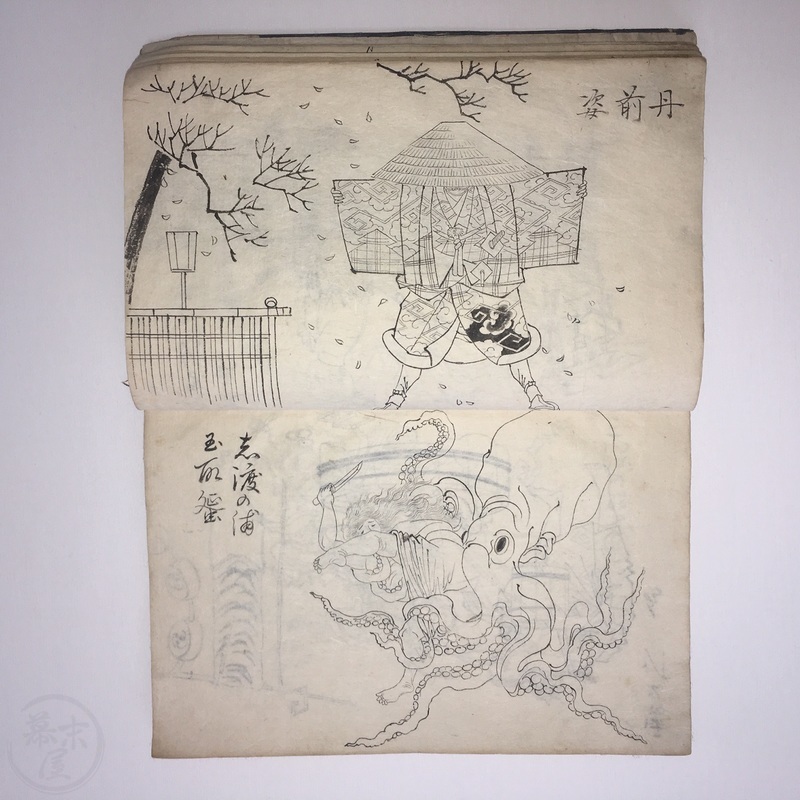 丹前姿
志渡の浦
玉取蜑
幕末屋